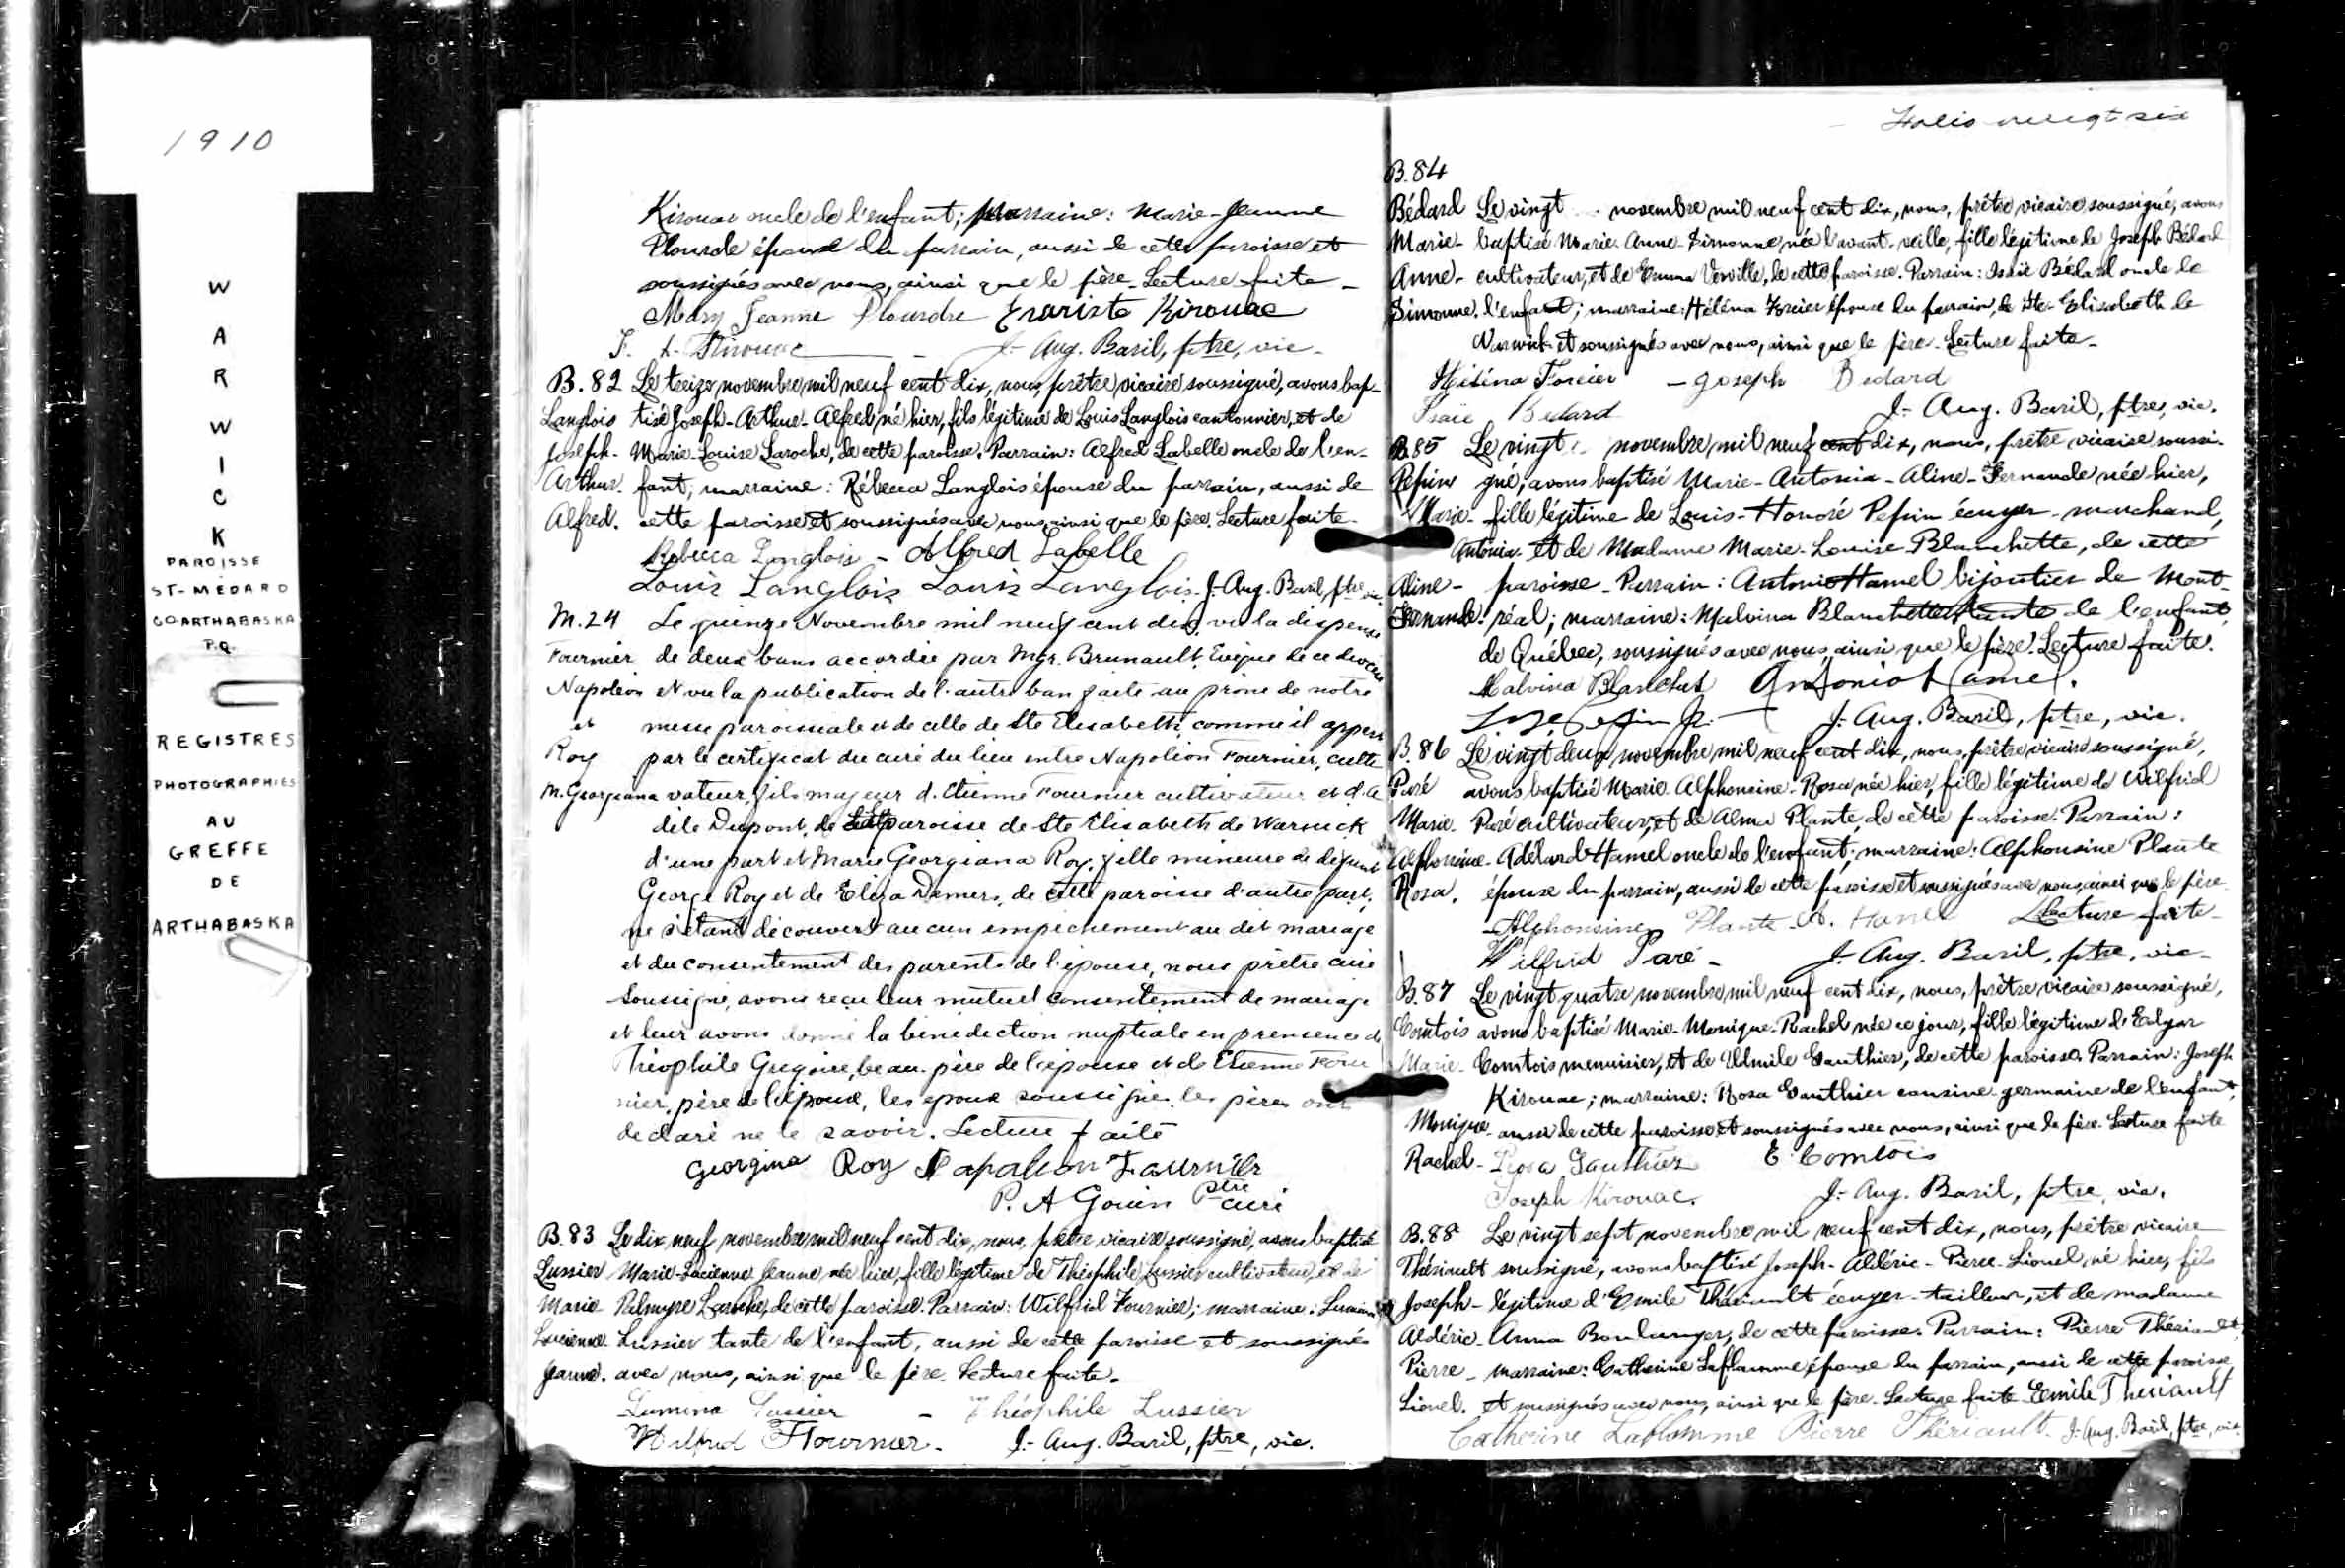 1910
WARWICK
PAROISSE
ST-MÉDARD
CO ARTHABASKA
P.Q.
REGISTRES
PHOTOGRAPHIES
AU
GREFFE
DE
ARTHABASKA
Kirouac oncle de l'enfant; marraine: Marie-Jeanne
Plourde épouse du parrain, aussi de cette paroisse et
soussignés avec nous, ainsi que le père. Lecture faite.
Mary Jeanne Plourdre Evariste Kirouac
F. A. Kirouac J.-Aug. Baril, ptre, vic.
B. 82 Le treize novembre mil neuf cent dix, nous, prêtre vicaire soussigné, avons bap-
Langlois tisé Joseph-Arthur-Alfred né hier, fils légitime de Louis Langlois cantonnier, et de
Joseph- Marie-Louise Laroche, de cette paroisse. Parrain: Alfred Labelle oncle de l'en-
Arthur. fant; marraine: Rébecca Langlois épouse du parrain, aussi de
Alfred. cette paroisse et soussignés avec nous, ainsi que le père. Lecture faite.
Rebecca Langlois - Alfred Labelle
Louis Langlois Louis Langlois. J.-Aug. Baril, ptre, vic.
M. 24 Le quinze Novembre mil neuf cent dix, vu la dispense
Fournier de deux bans accordée par Mgr. Brunault, Evêque de ce diocèse
Napoléon et vu la publication de l'autre ban faite au prône de notre
et messe paroissiale et de celle de Ste Elisabeth, comme il appert
Roy par le certificat du curé du lieu entre Napoléon Fournier, culti
M. Georgiana vateur, fils majeur d. Etienne Fournier cultivateur et d. A
dèle Dupont, de la paroisse de Ste Elisabeth de Warwick
d'une part et Marie Georgiana Roy, fille mineure de défunt
George Roy et de Eliza Demers, de cette paroisse d'autre part,
ne s'étant découvert aucun empêchement au dit mariage
et du consentement des parents de l'épouse, nous prêtre curé
soussigné, avons reçu leur mutuel consentement de mariage
et leur avons donné la bénédiction nuptiale en presence de
Théophile Gregoire, beau-père de l'épouse et de Etienne Four
nier, père de l'époux, les epoux soussignés, les pères ont
declaré ne le savoir. Lecture faite
Georgina Roy Napoleon Fournier
P. A Gouin Ptre curé
B. 83 Le dix neuf novembre mil neuf cent dix, nous, prêtre vicaire soussigné, avons baptisé
Lussier Marie-Lucienne-Jeanne, née hier, fille légitime de Théophile Lussier cultivateur, et de
Marie Palmyre Laroche, de cette paroisse. Parrain: Wilfrid Fournier; marraine: Lumina
Lucienne. Lussier tante de l'enfant, aussi de cette paroisse et soussignés
Jeanne. avec nous, ainsi que le père. Lecture faite.
Lumina Lussier - Théophile Lussier
Wilfrid Fournier. J.-Aug. Baril, ptre, vic.
Folio vingt six
B. 84
Bédard Le vingt novembre mil neuf cent dix, nous, prêtre vicaire soussigné, avons
Marie- baptisé Marie-Anne-Simonne née l'avant-veille, fille légitime de Joseph Bédard
Anne- cultivateur, et de Emma Verville, de cette paroisse. Parrain: Isaïe Bédard oncle de
Simonne. l'enfant; marraine: Héléna Forcier épouse du parrain, de Ste-Elisabeth de
Warwick et soussignés avec nous, ainsi que le père. Lecture faite.
Héléna Forcier - Joseph Bedard
Isaïe Bedard J.-Aug. Baril, ptre, vic.
B. 85 Le vingt novembre mil neuf cent dix, nous, prêtre vicaire soussi-
Pepin gné, avons baptisé Marie-Antonia-Aline-Fernande née hier,
Marie- fille légitime de Louis-Honoré Pepin écuyer-marchand,
Antonia- et de Madame Marie-Louise Blanchette, de cette
Aline- paroisse. Parrain: Antonio Hamel bijoutier de Mont-
Fernande. réal; marraine: Malvina Blanchette tante de l'enfant,
de Québec, soussignés avec nous, ainsi que le père. Lecture faite.
Malvina Blanchet Antonio Hamel.
Pepin Jr. J.-Aug. Baril, ptre, vic.
B. 86 Le vingt deux novembre mil neuf cent dix, nous, prêtre vicaire soussigné,
Paré avons baptisé Marie-Alphonsine-Rosa née hier, fille légitime de Wilfrid
Marie- Paré cultivateur, et de Alma Plante, de cette paroisse. Parrain:
Alphonsine- Adélard Hamel oncle de l'enfant; marraine: Alphonsine Plante
Rosa. épouse du parrain, aussi de cette paroisse et soussignés avec nous, ainsi que le père.
Alphonsine Plante A. Hamel Lecture faite-
Wilfrid Paré - J.-Aug. Baril, ptre, vic-
B. 87 Le vingt quatre novembre mil neuf cent dix, nous, prêtre vicaire soussigné,
Comtois avons baptisé Marie-Monique-Rachel née ce jour, fille légitime d'Edgar
Marie- Comtois menuisier, et de Elmile Gauthier, de cette paroisse. Parrain: Joseph
Kirouac; marraine: Rosa Gauthier cousine-germaine de l'enfant,
Monique- aussi de cette paroisse et soussignés avec nous, ainsi que le père. Lecture faite
Rachel- Rosa Gauthier E. Comtois
Joseph Kirouac. J.-Aug. Baril, ptre, vic.
B. 88 Le vingt sept novembre mil neuf cent dix, nous, prêtre vicaire
Thériault soussigné, avons baptisé Joseph-Aldéric-Pierre-Lionel, né hier, fils
Joseph- légitime d'Emile Thériault écuyer-tailleur, et de madame
Aldéric- Anna Boulanger, de cette paroisse. Parrain: Pierre Thériault,
Pierre- marraine: Catherine Laflamme épouse du parrain, aussi de cette paroisse,
Lionel. et soussignés avec nous, ainsi que le père. Lecture faite. Emile Theriault
Catherine Laflamme Pierre Thériault. J.-Aug. Baril, ptre, vic.